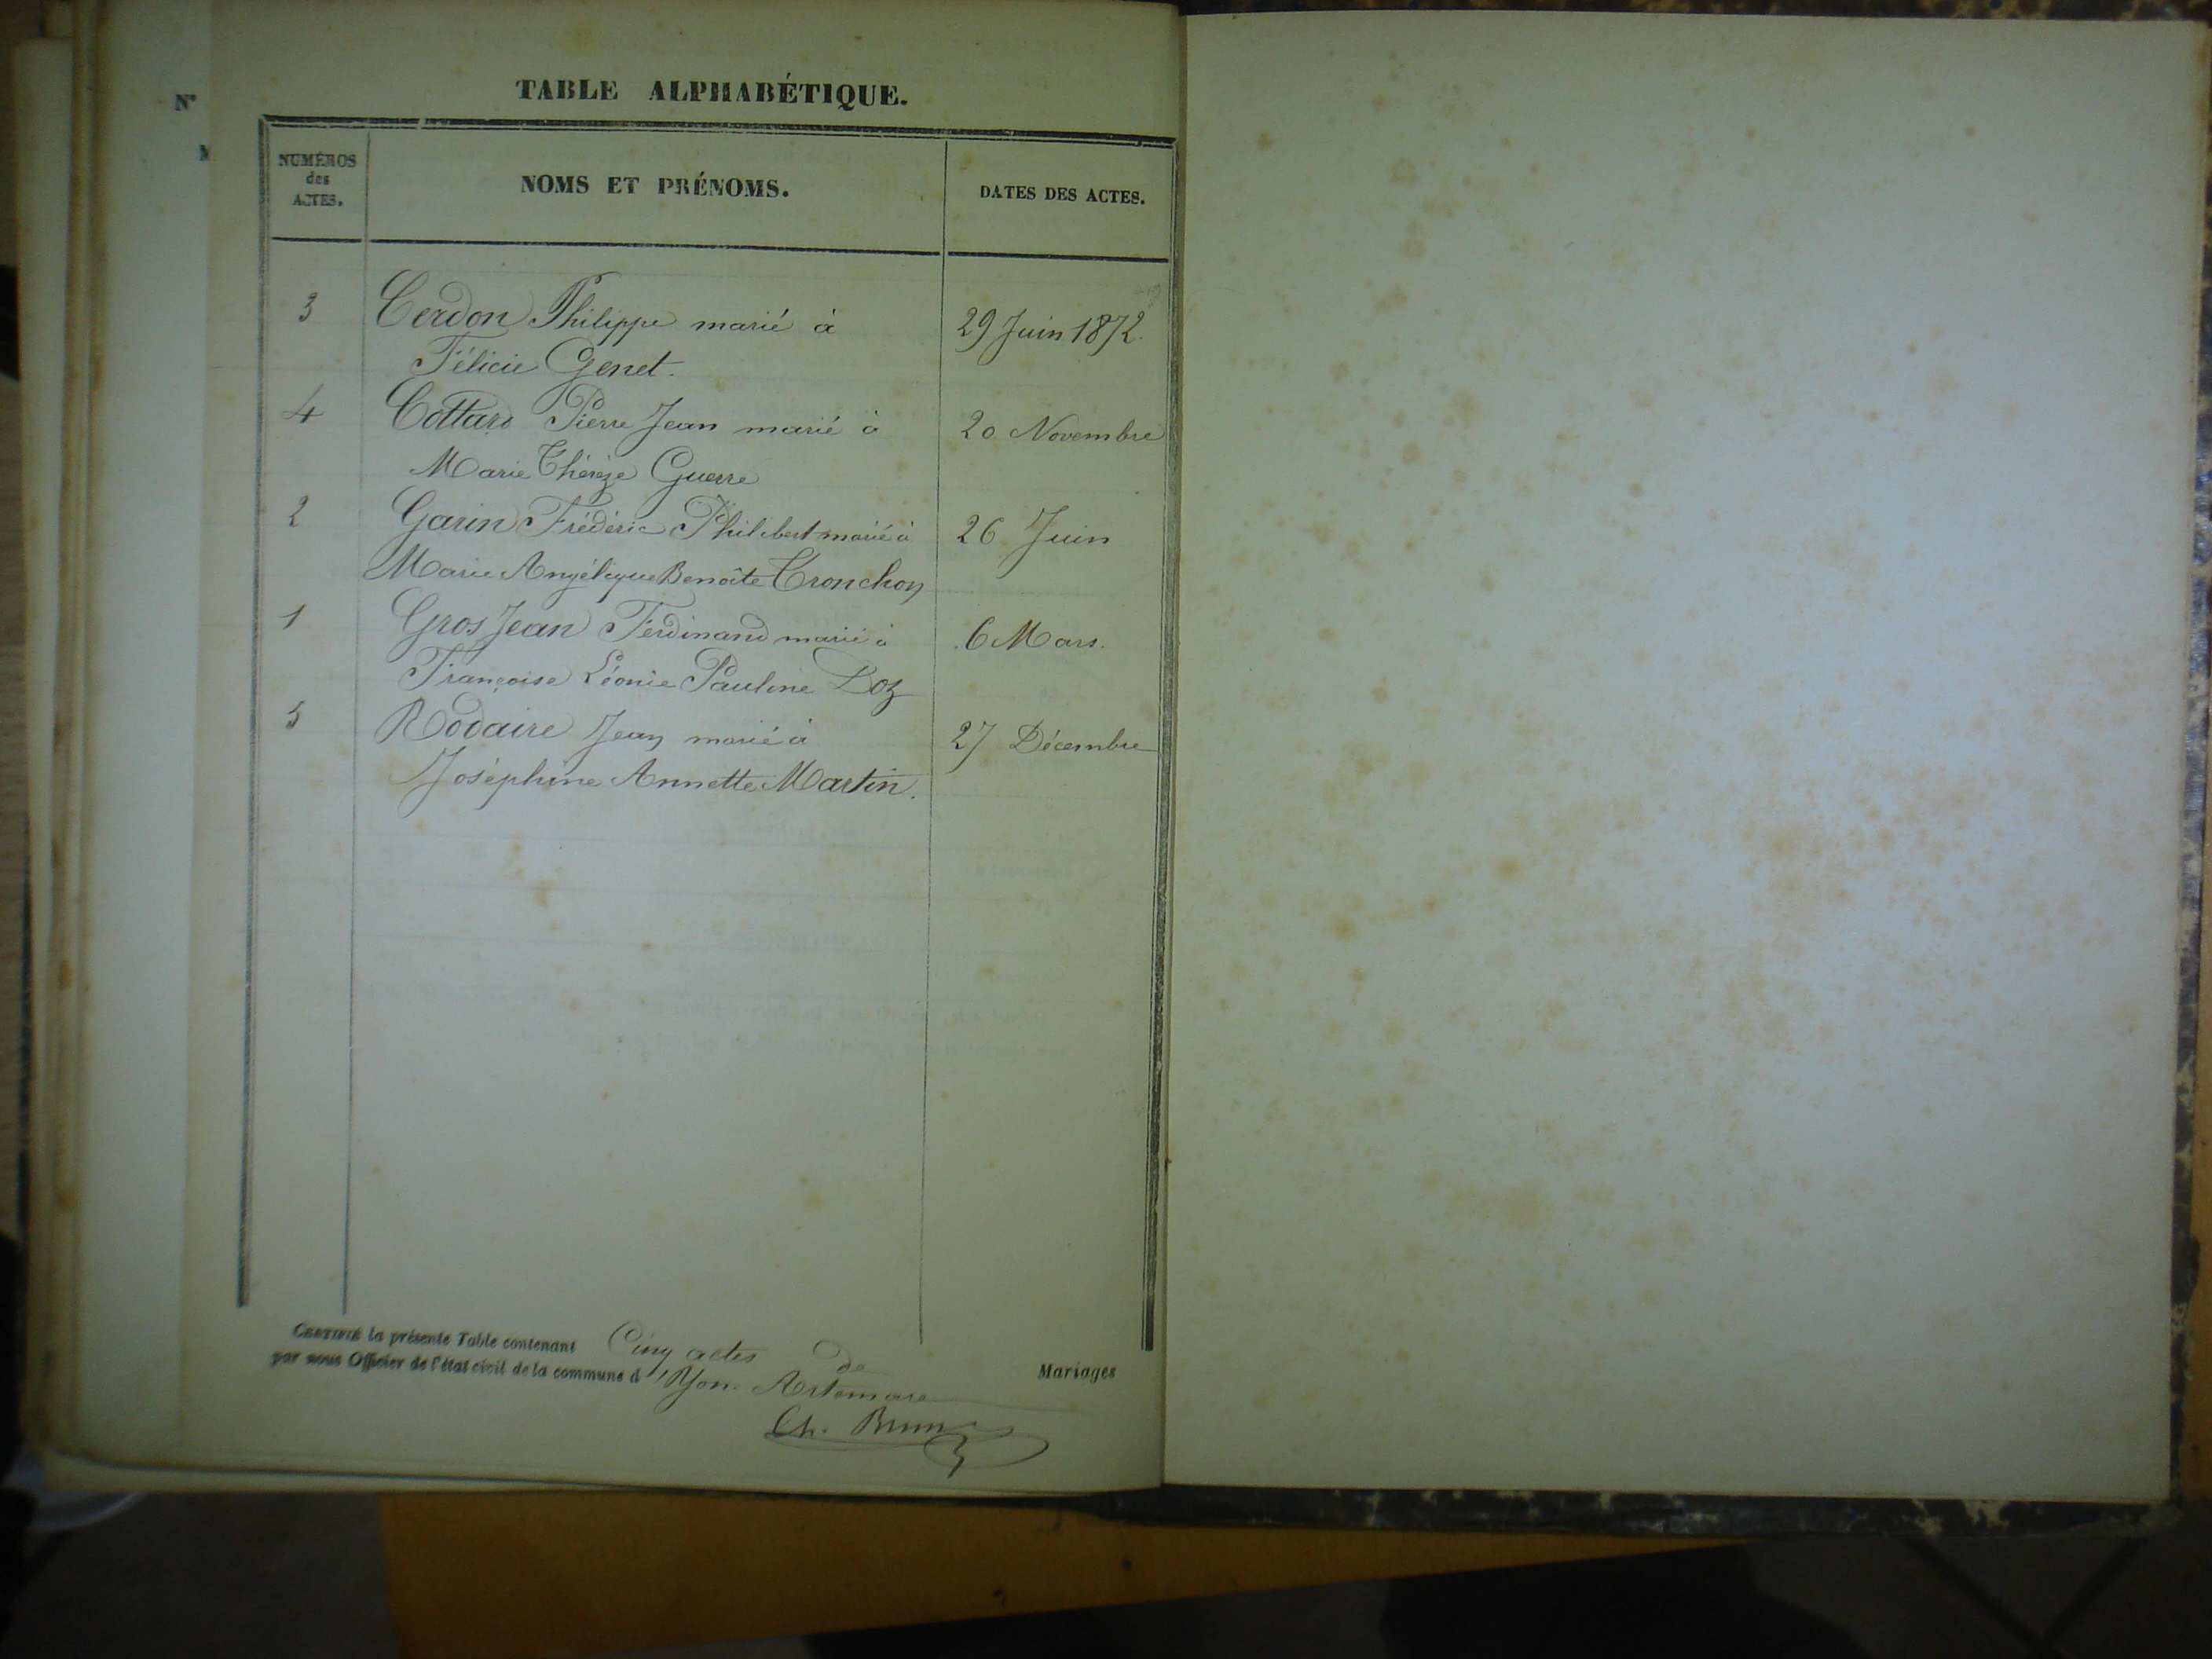 N°
M
TABLE ALPHABÉTIQUE.
NUMÉROS
des
ACTES.
NOMS ET PRÉNOMS.
DATES DES ACTES.
3 Cerdon Philippe marié à 29 Juin 1872.
Félicie Genet.
4 Cottard Pierre Jean marié à 20 Novembre
Marie Thérèze Guerre
2 Garin Frédéric Philibert marié à 26 Juin
Marie Angélique Benoîte Tronchon
1 Gros Jean Ferdinand marié à 6 Mars.
Françoise Léonie Pauline Doz
5 Rodaire Jean marié à 27 Décembre
Joséphine Annette Martin.
CERTIFIÉ la présente Table contenant Cinq actes de Mariages
par nous Officier de l'état civil de la commune d'Yon Artemare
Ch. Brun